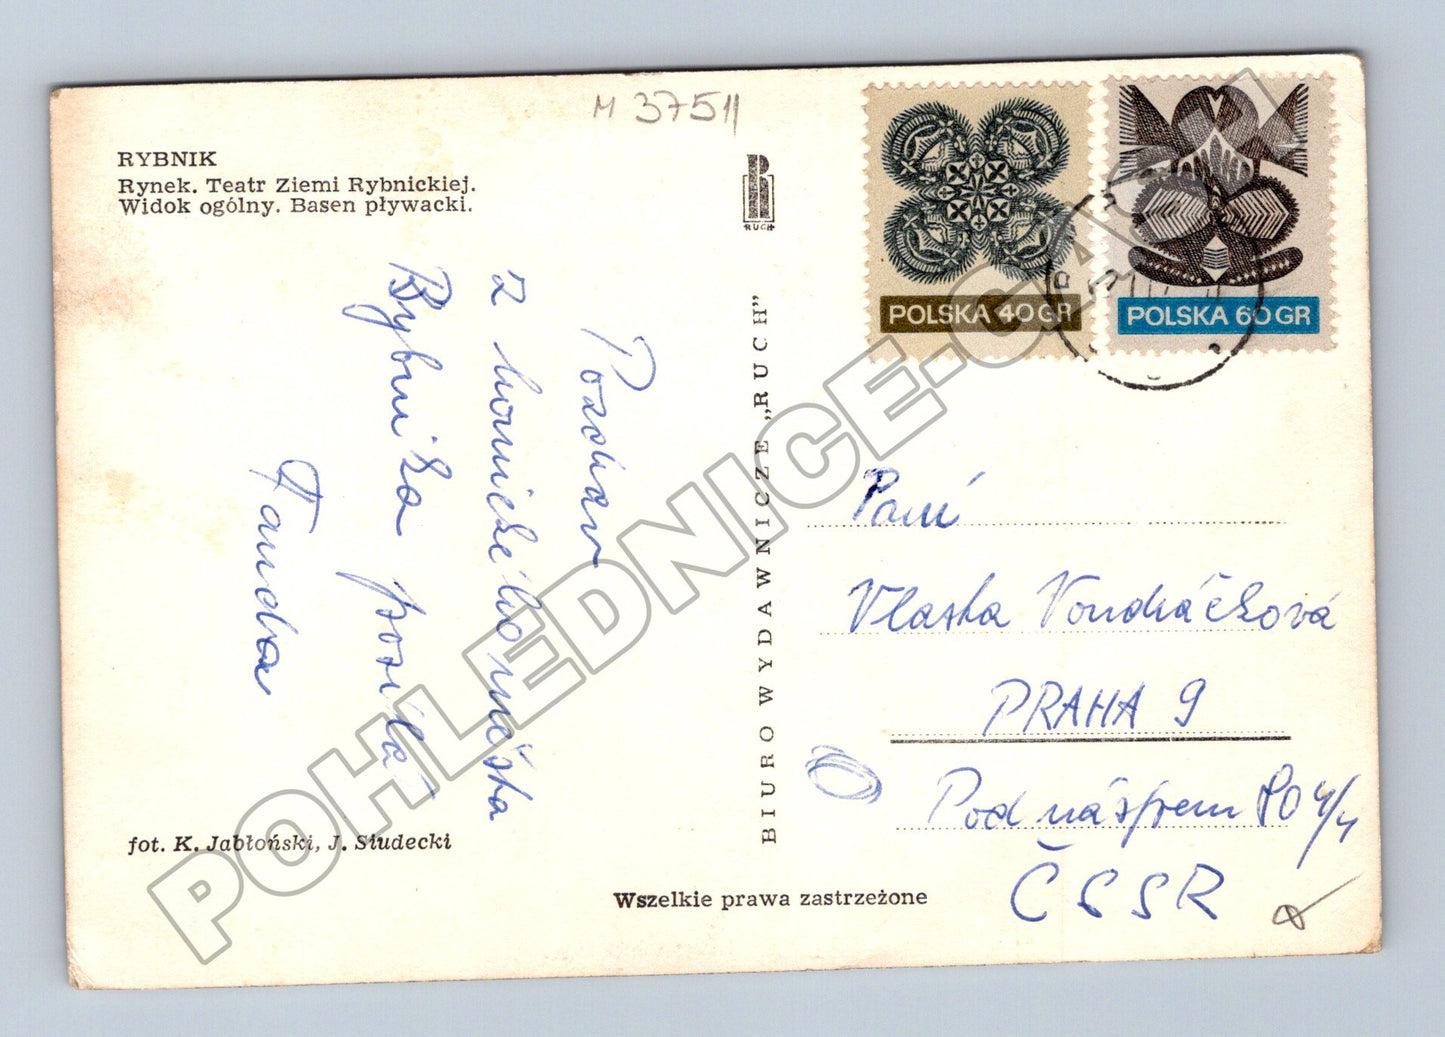 M 37511
RYBNIK
Rynek. Teatr Ziemi Rybnickiej.
Widok ogólny. Basen pływacki.
R
RUCH
POLSKA 40 GR
POLSKA 60 GR
Pozdrav
z hornického města
Rybnika posílá
Fanda
BIURO WYDAWNICZE „RUCH”
Paní
Vlasta Vondráčková
PRAHA 9
Pod náspem 804/4
ČSSR
fot. K. Jabłoński, J. Siudecki
Wszelkie prawa zastrzeżone